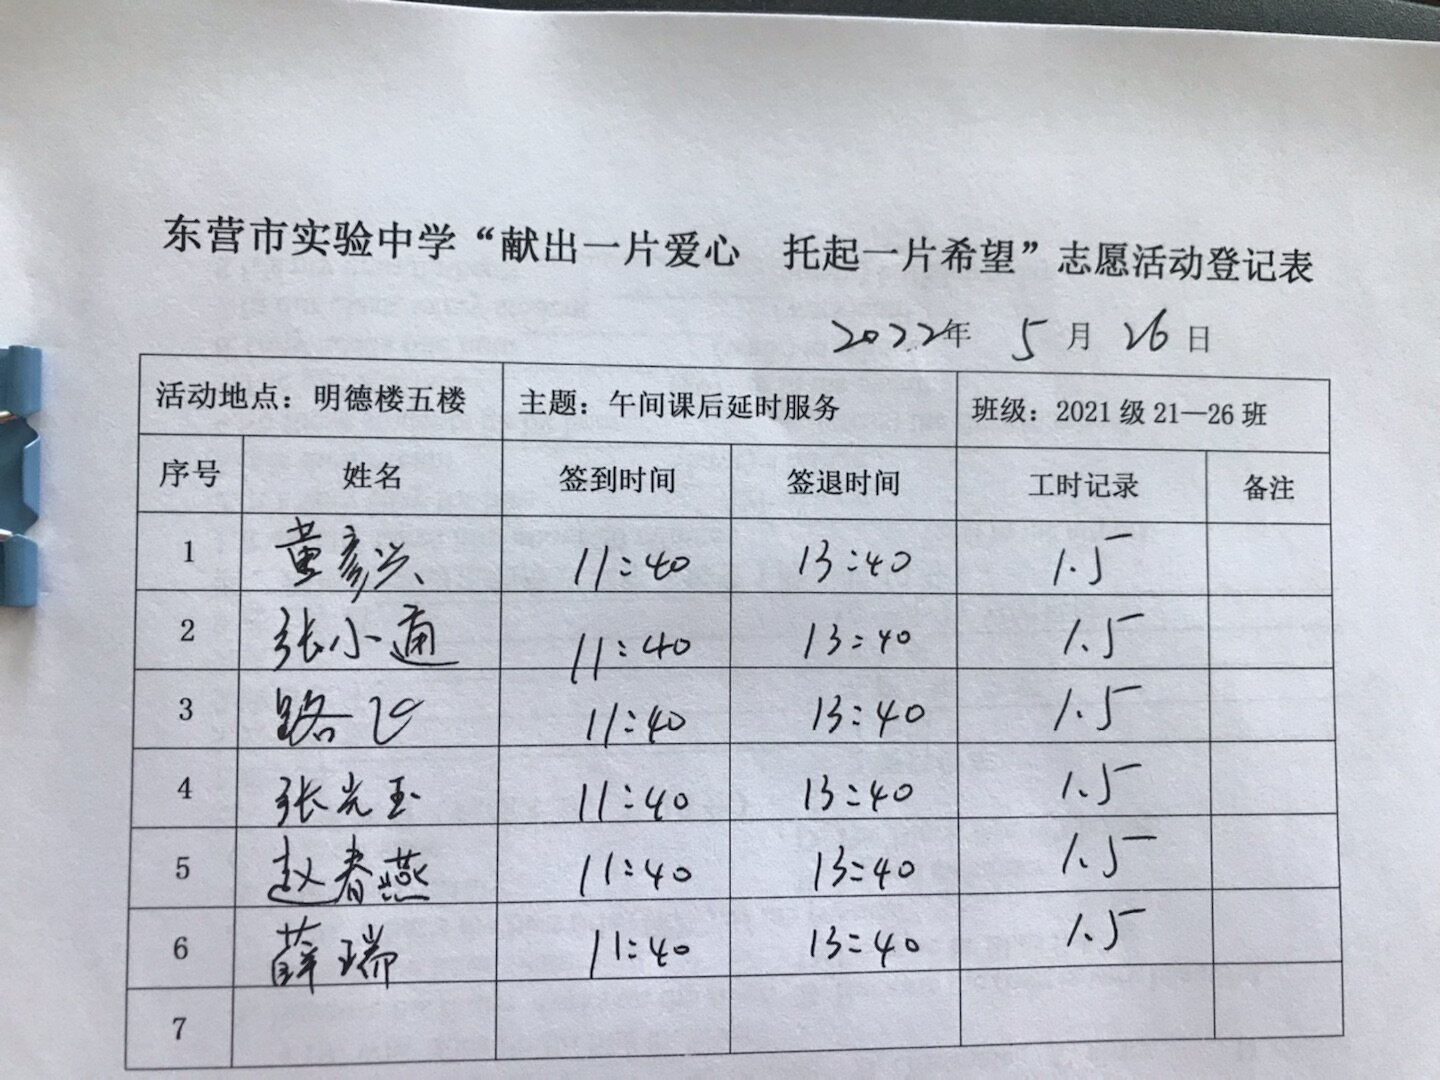 东营市实验中学“献出一片爱心 托起一片希望”志愿活动登记表
2022年 5月 26日
活动地点：明德楼五楼 主题：午间课后延时服务 班级：2021级21—26班
序号 姓名 签到时间 签退时间 工时记录 备注
1 黄彦兴 11:40 13:40 1.5
2 张小通 11:40 13:40 1.5
3 路飞 11:40 13:40 1.5
4 张光玉 11:40 13:40 1.5
5 赵春燕 11:40 13:40 1.5
6 薛瑞 11:40 13:40 1.5
7